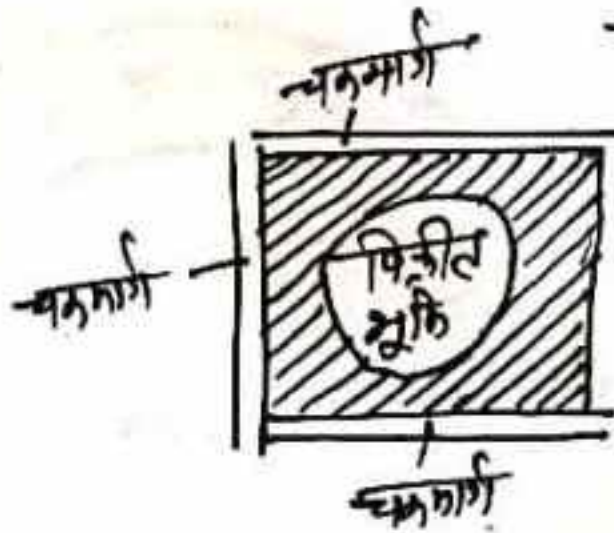 चकमार्ग
चकमार्ग
विक्रीत
भूमि
चकमार्ग